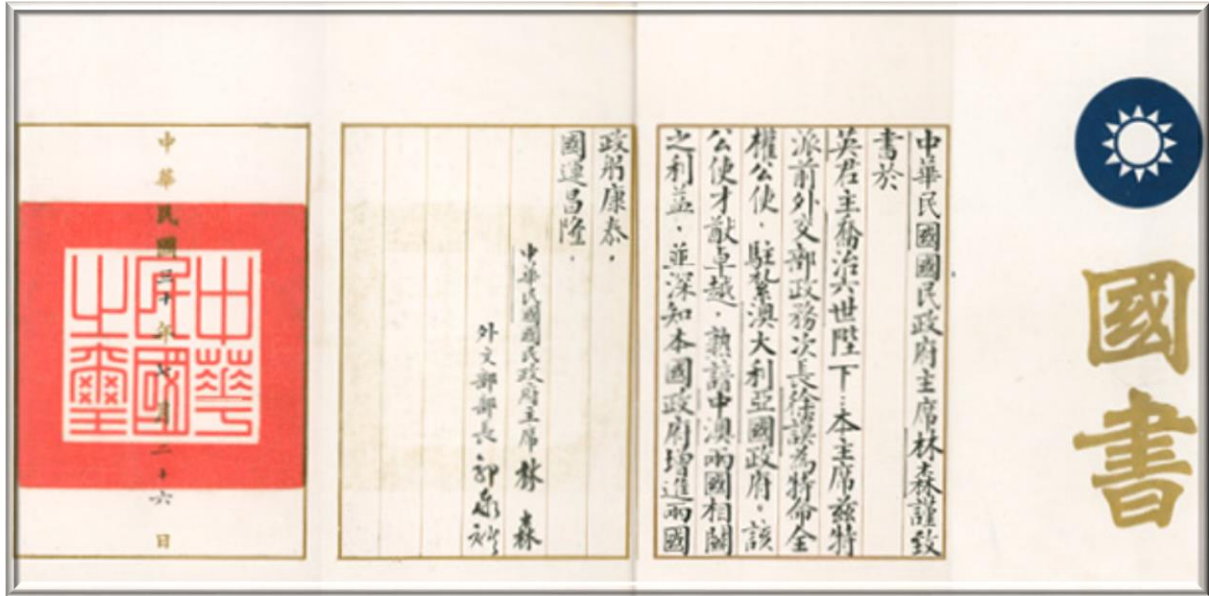 國書
中華民國國民政府主席林森謹致
書於
英君主喬治六世陛下．本主席茲特
派前外交部政務次長徐謨為特命全
權公使，駐紮澳大利亞國政府。該
公使才猷卓越，熟諳中澳兩國相關
之利益，並深知本國政府增進兩國
政躬康泰，
國運昌隆．
中華民國國民政府主席 林 森
外交部部長 郭泰祺
中華民國三十年七月二十六日
中華民國之璽